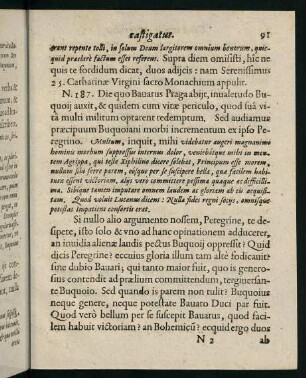 castigatus. 91
erant repente tolli, in solum Deum largitorem omnium bonorum, quic-
quid præclarè factum esset referens. Supra diem omisisti, hîc ne
quis te sordidum dicat, duos adjicis: nam Serenissimus
25. Catharinæ Virgini sacro Monachium appulit.
N. 187. Die quo Bauarus Praga abijt, inualetudo Bu-
quoij auxit, & quidem cum vitæ periculo, quod suâ vi-
tâ multi militum optarent redemptum. Sed audiamus
præcipuum Buquoiani morbi incrementum ex ipso Pe-
regrino. Multum, inquit, mihi videbatur augeri magnanimi
hominis morbum suppressus internus dolor, venitibique mihi in men-
tem Agrippa, qui teste Xiphilino dicere solebat, Principum esse morem,
nullum sibi ferre parem, eosque per se suscipere bella, quæ facilem habi-
tura essent victoriam, alijs vero committere pessima quæque ac difficilli-
ma. Sibique tamen imputare omnem laudem ac gloriam ab ijs acquisi-
tam. Quod voluit Lucanus dicens: Nulla fides regni socijs, omnisque
potestas impatiens consortis erat.
Si nullo alio argumento nossem, Peregrine, te de-
sipere, isto solo & vno ad hanc opinationem adducerer,
an inuidia alienæ laudis pectus Buquoij oppressit? Quid
dicis Peregrine? eccuius gloria illum tam altè fodicauit?
sine dubio Bauari; qui tanto maior fuit, quo is genero-
sius contendit ad prælium committendum, tergiuersan-
te Buquoio. Sed quando is parem non tulit? Buquoius
neque genere, neque potestate Bauato Duci par fuit.
Quod verò bellum per se suscepit Bauatus, quod faci-
lem habuit victoriam? an Bohemicũ? ecquid ergo duos
N 2 ab